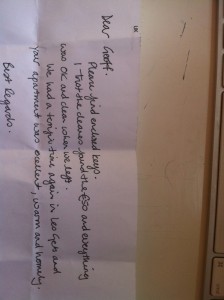 Dear Geoff.
Please find enclosed keys.
I that the cleaner found the €50 and everything
was OK and clean when we left.
We had a temific time again in Les Gets and
your apartment was excellent, warm and homely.
Best Regards.